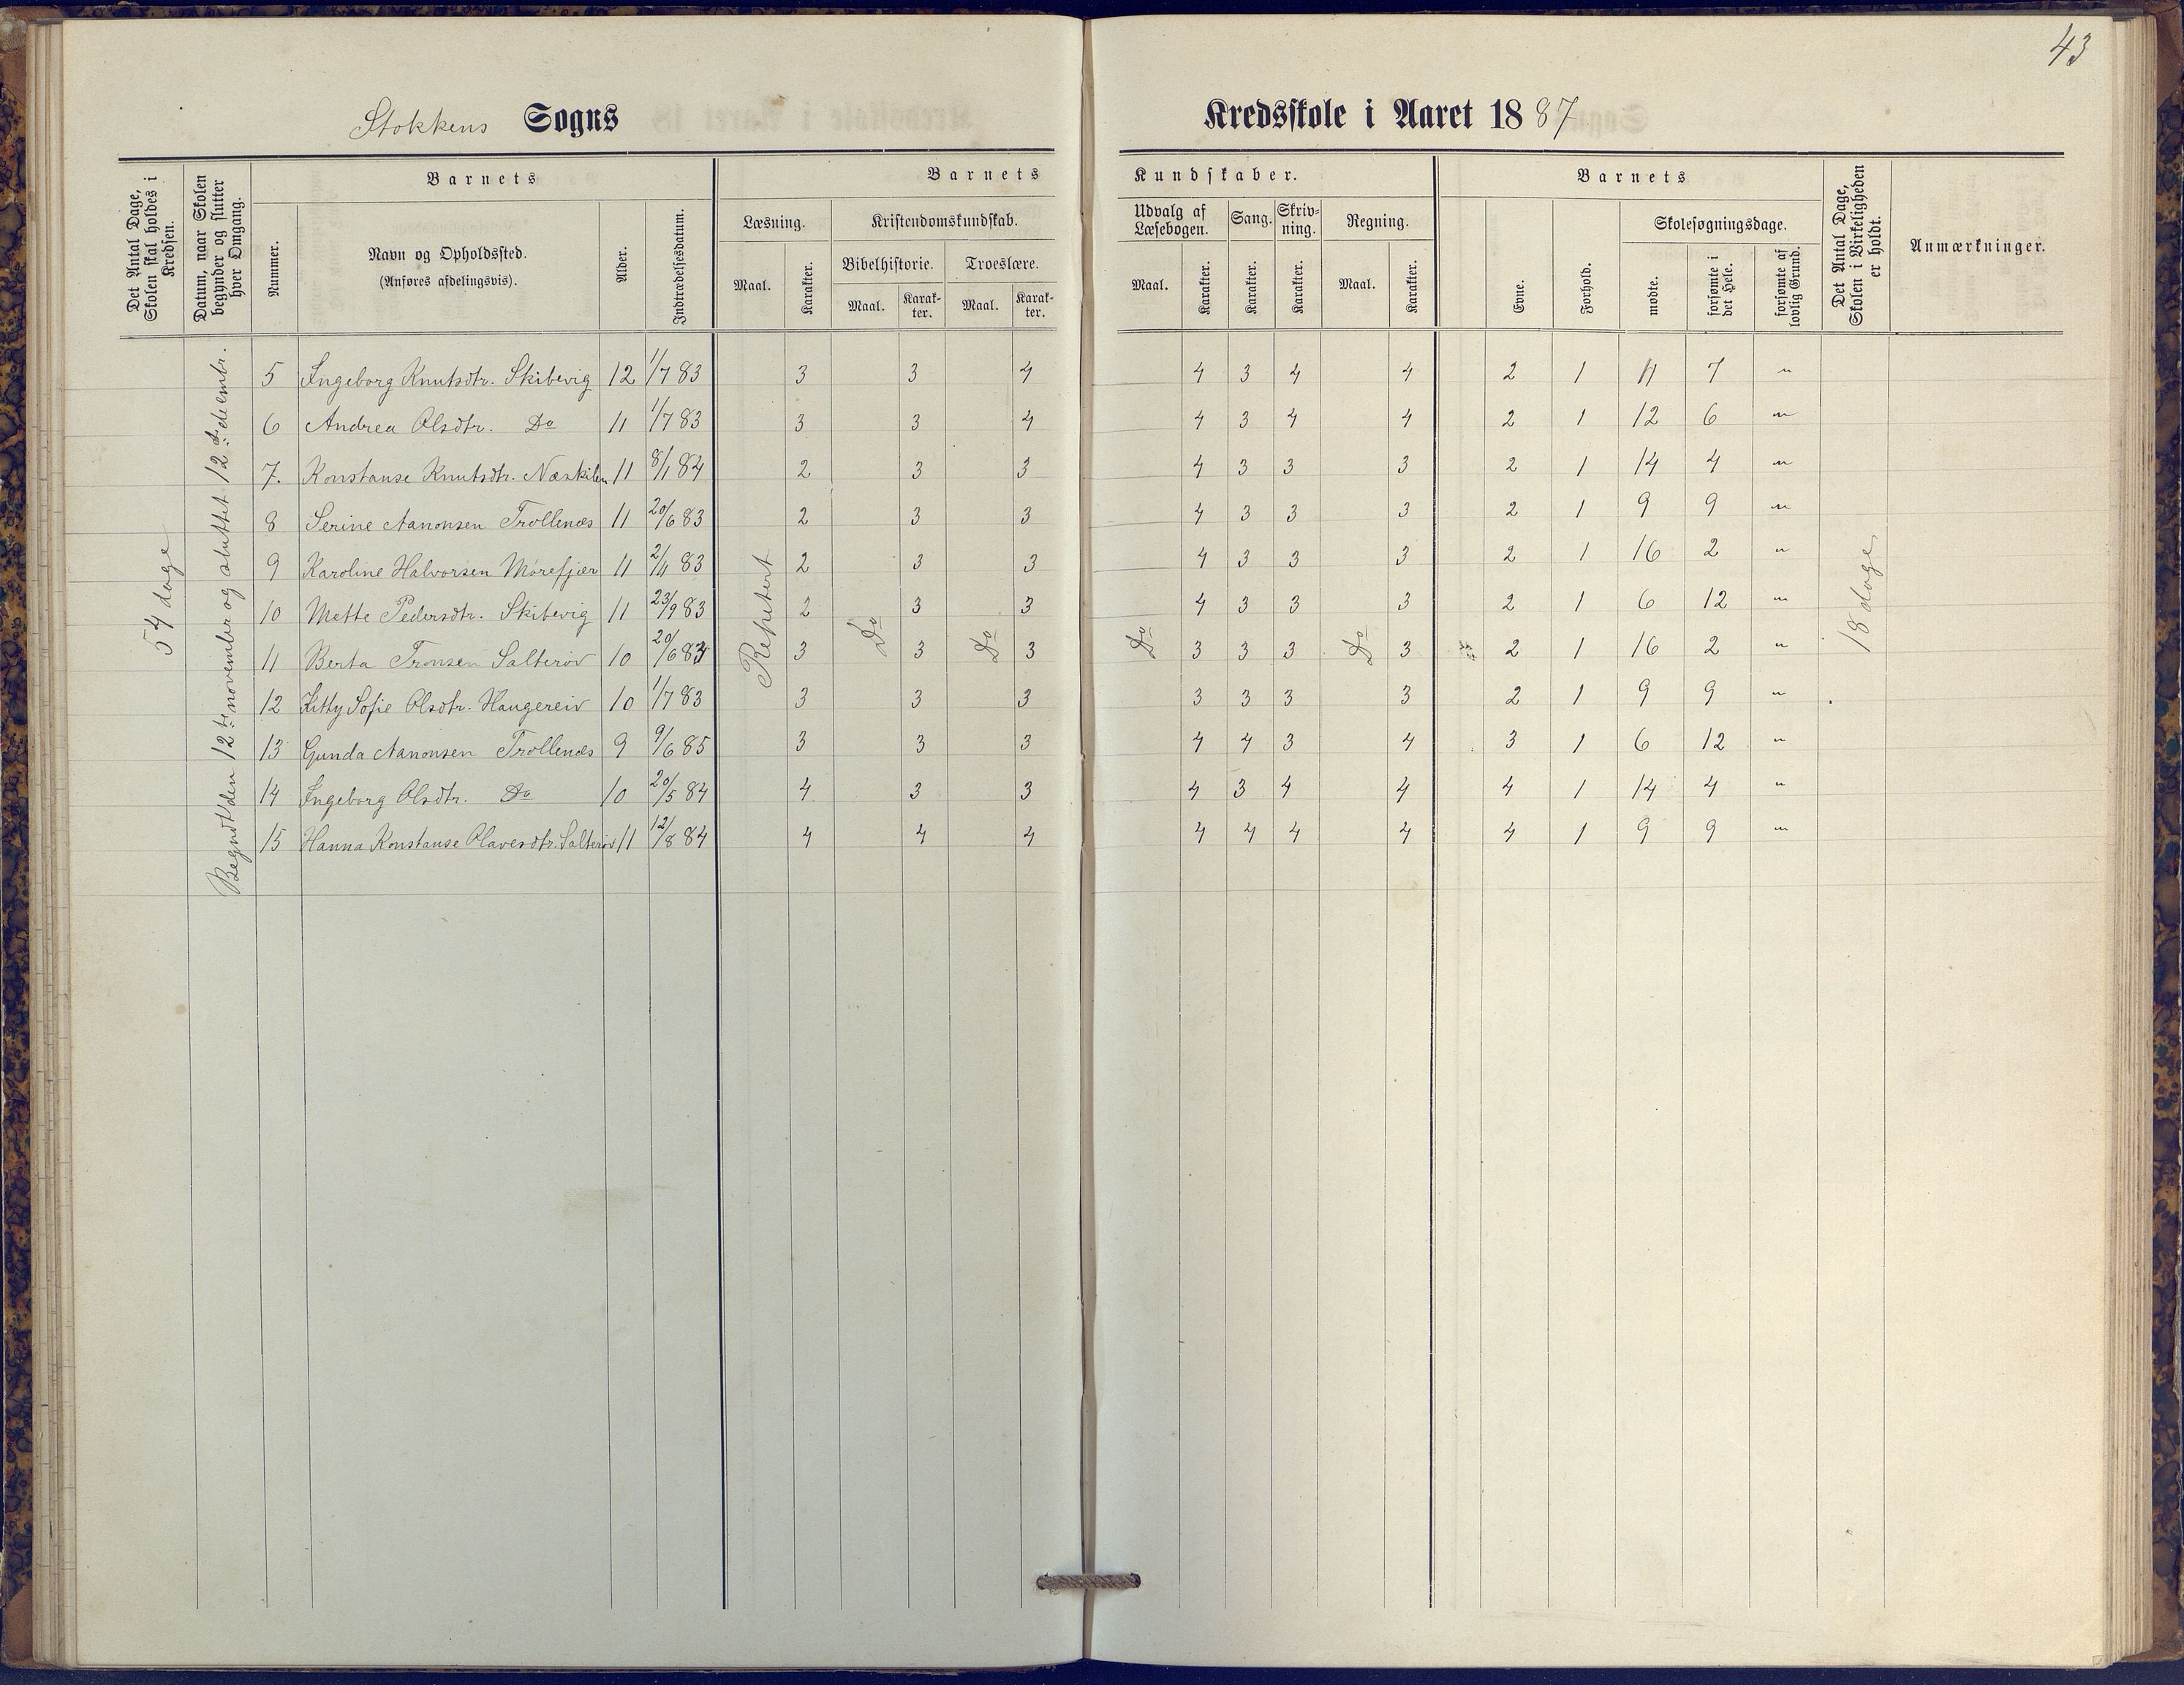 43
Stokkens Sogns Kredsskole i Aaret 1887
Det Antal Dage, Skolen skal holdes i Kredsen.
Datum, naar Skolen begynder og slutter hver Omgang.
Barnets
Nummer.
Navn og Opholdssted.
(Anføres afdelingsvis).
Alder.
Indtrædelsesdatum.
Barnets Kundskaber.
Læsning.
Maal. Karakter.
Kristendomskundskab.
Bibelhistorie. Troeslære.
Maal. Karakter. Maal. Karakter.
Udvalg af Læsebogen.
Maal. Karakter.
Sang.
Karakter.
Skrivning.
Karakter.
Regning.
Maal. Karakter.
Barnets
Evne. Forhold.
Skolesøgningsdage.
mødte. forsømte i det Hele. forsømte af lovlig Grund.
Det Antal Dage, Skolen i Virkeligheden er holdt.
Anmærkninger.
54 dage
Begyndt den 12te november og sluttet 12te desembr.
Repetert Do Do Do Do
18 dage
5 Ingeborg Knutsdtr. Skibevig 12 1/7 83 3 3 4 4 3 4 4 2 1 11 7 "
6 Andrea Olsdtr. Do 11 1/7 83 3 3 4 4 3 4 4 2 1 12 6 "
7. Konstanse Knutsdtr. Næskilen 11 8/1 84 2 3 3 4 3 3 3 2 1 14 4 "
8 Serine Aanonsen Trollenæs 11 20/6 83 2 3 3 4 3 3 3 2 1 9 9 "
9 Karoline Halvorsen Mörefjær 11 2/4 83 2 3 3 4 3 3 3 2 1 16 2 "
10 Mette Pedersdtr. Skibevig 11 23/9 83 2 3 3 4 3 3 3 2 1 6 12 "
11 Berta Tronsen Salteröv 10 20/6 83 3 3 3 3 3 3 3 2 1 16 2 "
12 Kitty Sofie Olsdtr. Haugereiv 10 1/7 83 3 3 3 3 3 3 3 2 1 9 9 "
13 Gunda Aanonsen Trollenæs 9 9/6 85 3 3 3 4 4 3 4 3 1 6 12 "
14 Ingeborg Olsdtr. Do 10 20/5 84 4 3 3 4 3 4 4 4 1 14 4 "
15 Hanna Konstanse Olavesdtr. Salteröv 11 12/8 84 4 4 4 4 4 4 4 4 1 9 9 "